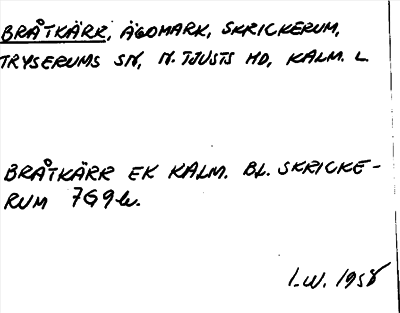 BRÅTKÄRR, ÄGOMARK, SKRICKERUM,
TRYSERUMS SN, N. TJUSTS HD, KALM. L
BRÅTKÄRR EK KALM. BL. SKRICKE-
RUM 7G9b.
I.W. 1958